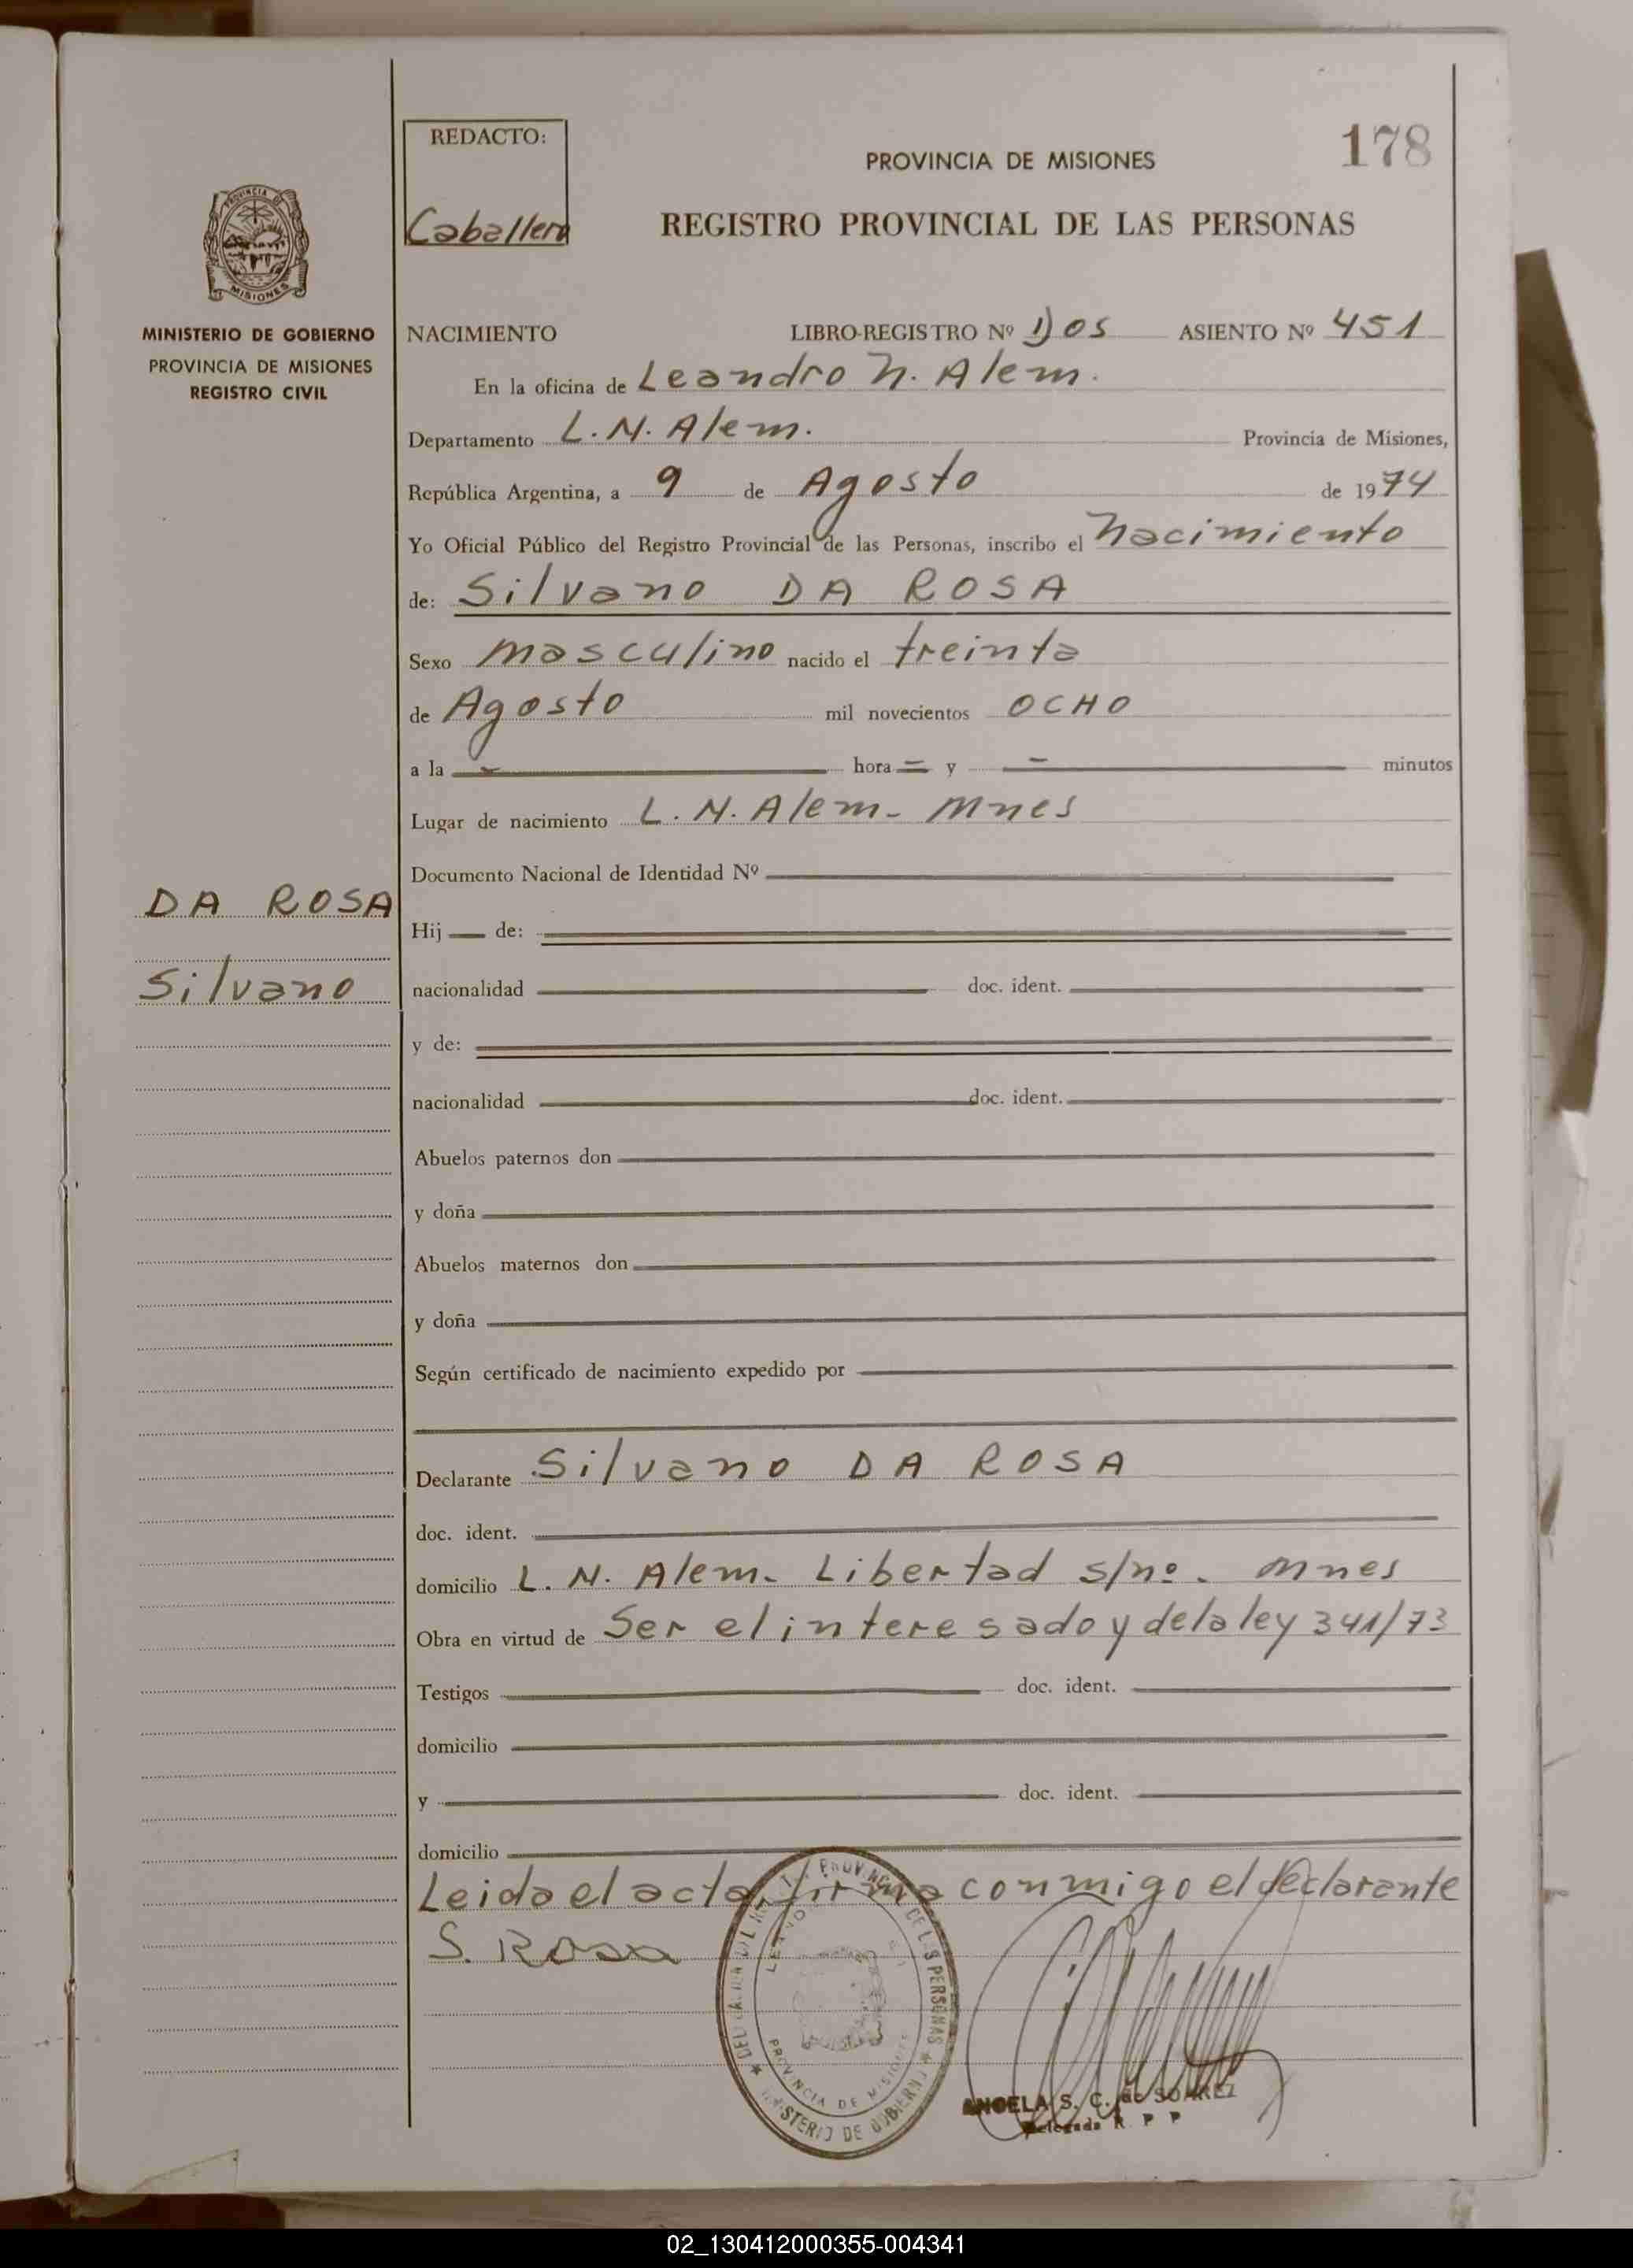 REDACTO:
Caballero
178
PROVINCIA DE MISIONES
REGISTRO PROVINCIAL DE LAS PERSONAS
PROVINCIA DE
MISIONES
MINISTERIO DE GOBIERNO
PROVINCIA DE MISIONES
REGISTRO CIVIL
NACIMIENTO LIBRO-REGISTRO Nº Dos ASIENTO Nº 451
En la oficina de Leandro N. Alem.
Departamento L. N. Alem. Provincia de Misiones,
República Argentina, a 9 de Agosto de 1974
Yo Oficial Público del Registro Provincial de las Personas, inscribo el Nacimiento
de: Silvano DA ROSA
Sexo masculino nacido el treinta
de Agosto mil novecientos OCHO
a la - hora = y - minutos
Lugar de nacimiento L. N. Alem - Mnes
Documento Nacional de Identidad Nº
DA ROSA
Hij de:
Silvano
nacionalidad doc. ident.
y de:
nacionalidad doc. ident.
Abuelos paternos don
y doña
Abuelos maternos don
y doña
Según certificado de nacimiento expedido por
Declarante Silvano DA ROSA
doc. ident.
domicilio L. N. Alem - Libertad s/nº. Mnes
Obra en virtud de Ser el interesado y de la ley 341/73
Testigos doc. ident.
domicilio
y doc. ident.
domicilio
Leida el acta firma conmigo el declarante
S. Rosa
PROVINCIA DE MISIONES
MINISTERIO DE GOBIERNO
ANGELA S. C. de SOAREZ
Delegada R. P P
02_130412000355-004341